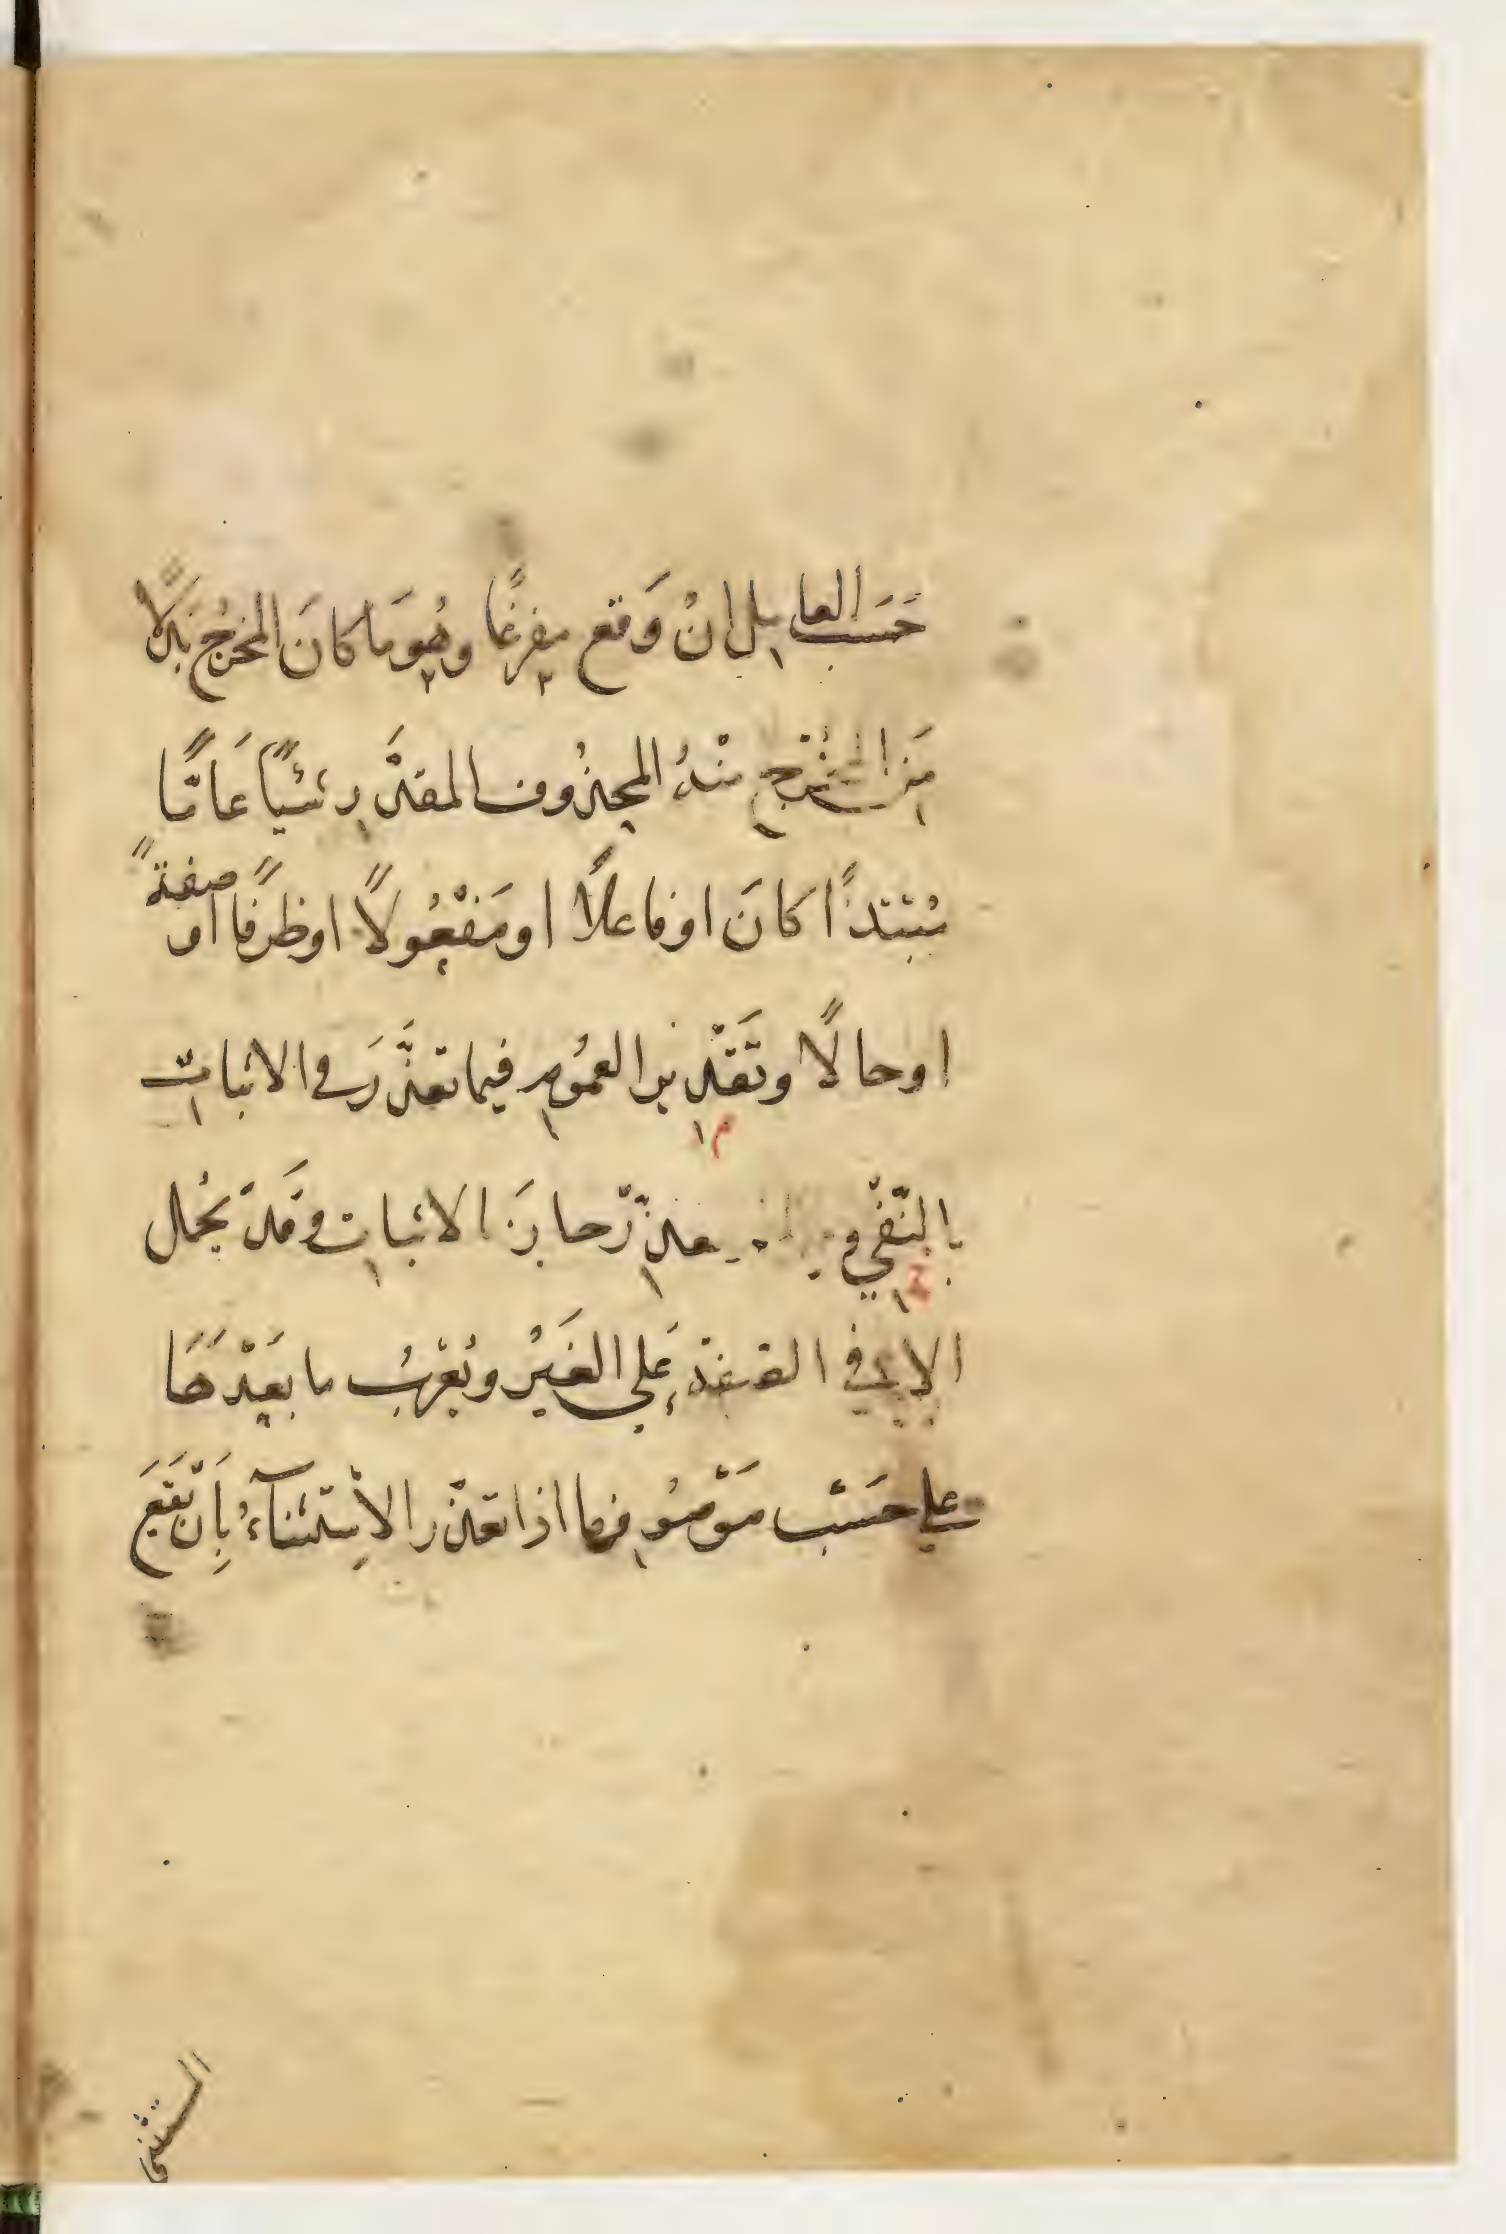 حَسَب العامل انْ وَقع مفرغًا وهُوَ مَا كانَ المخرَجُ بَدَلًا
مِنَ المُخْرَجِ مِنْهُ المحذُوف المقدَّرِ شَيْئًا عَامًّا
مُبْتَدأً كانَ او فاعلًا او مَفْعُولًا او ظرفًا او صفةً
او حالًا وتَقْديرُ العمُومِ فيما تعذَّرَ في الاثبات
بالنّفْي و تعذّرْ جازَ الاثبات وقَدْ يُحمل
الا في الصفة عَلى الغَيْر ويُعْرَبُ ما بعْدَهَا
على حَسْب مَوْصُوفها اذا تعذّر الاِسْتثناءُ بِاَنْ تَقَعَ
المستثنى